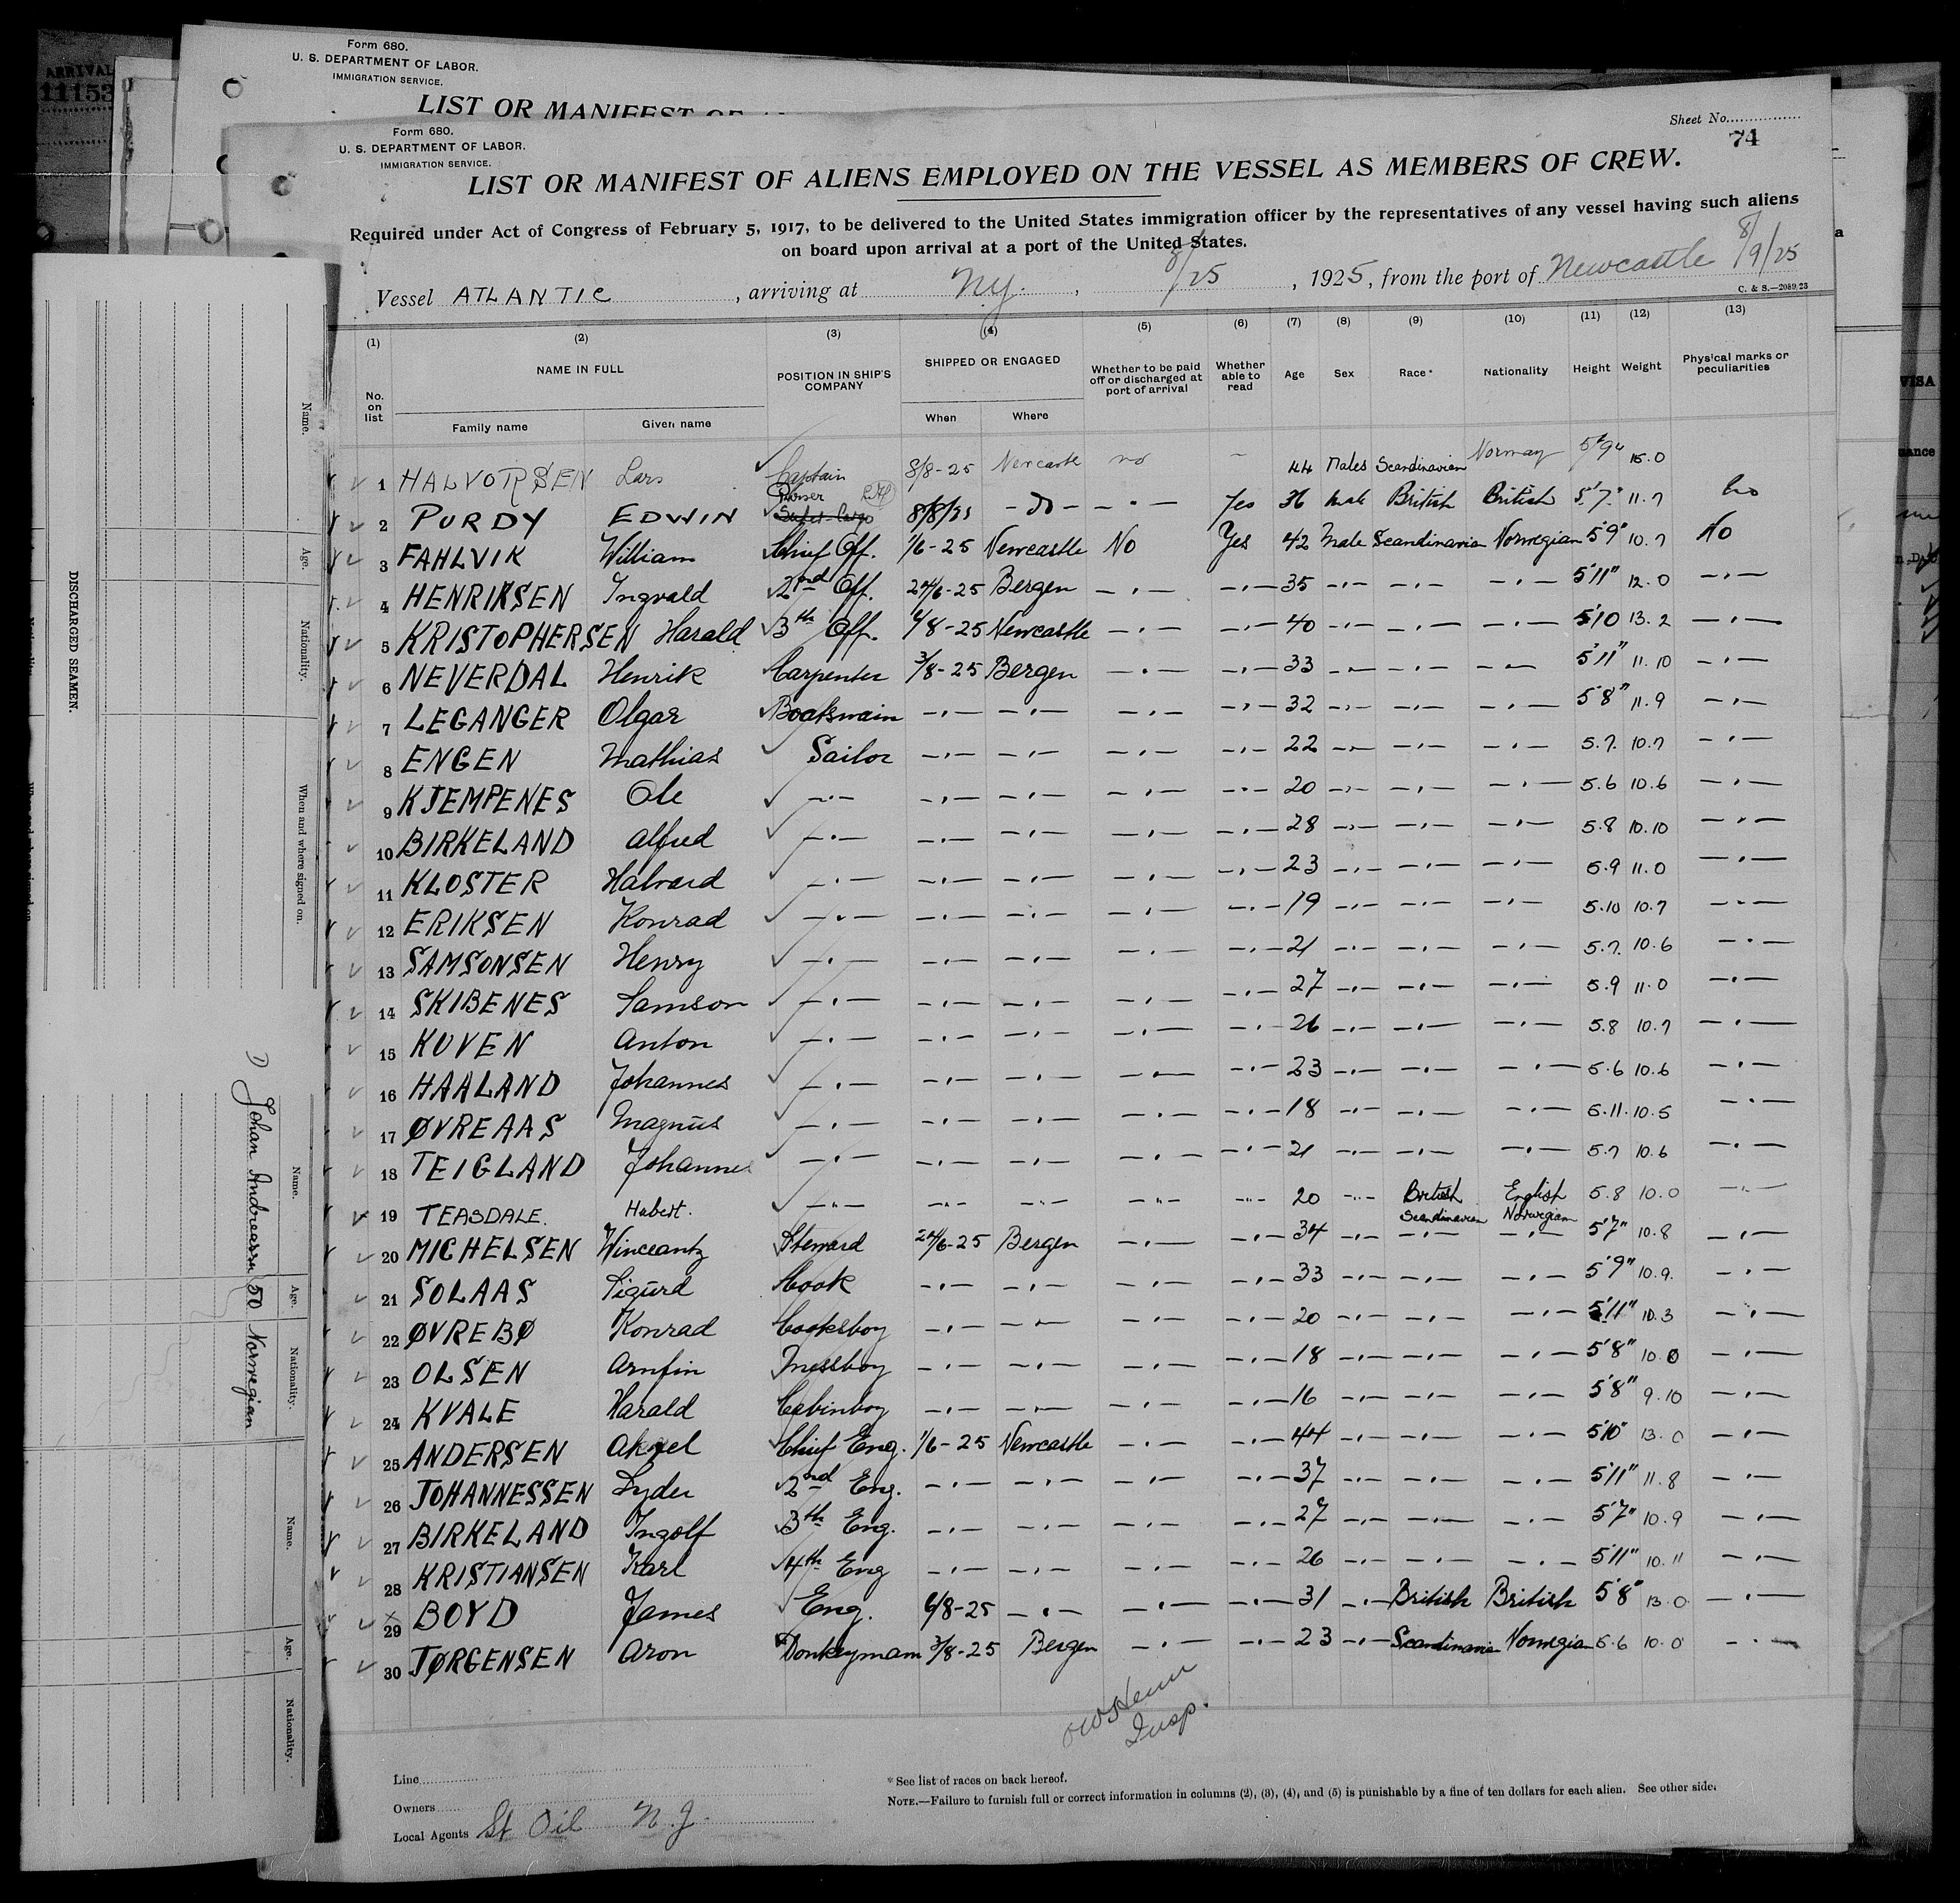 ARRIVAL
11153
Form 680.
U. S. DEPARTMENT OF LABOR.
IMMIGRATION SERVICE.
LIST OR MANIFEST OF
Form 680.
U. S. DEPARTMENT OF LABOR.
IMMIGRATION SERVICE.
Sheet No.
74
LIST OR MANIFEST OF ALIENS EMPLOYED ON THE VESSEL AS MEMBERS OF CREW.
Required under Act of Congress of February 5, 1917, to be delivered to the United States immigration officer by the representatives of any vessel having such aliens
on board upon arrival at a port of the United States.
Vessel ATLANTIC, arriving at N.Y., 8/25, 1925, from the port of Newcastle 8/9/25
C. & S.—2089.23
(1) (2) (3) (4) (5) (6) (7) (8) (9) (10) (11) (12) (13)
No. on list NAME IN FULL POSITION IN SHIP'S COMPANY SHIPPED OR ENGAGED Whether to be paid off or discharged at port of arrival Whether able to read Age Sex Race* Nationality Height Weight Physical marks or peculiarities
Family name Given name When Where
1 HALVORSEN Lars Captain 8/8-25 Newcastle no – 44 Males Scandinavian Norway 5'9" 15.0
2 PURDY EDWIN Purser Super-Cargo 8/8/25 -Do- -"- Yes 36 Male British British 5'7" 11.7 No
3 FAHLVIK William Chief Off. 1/6-25 Newcastle No Yes 42 Male Scandinavian Norwegian 5'9" 10.7 No
4 HENRIKSEN Ingvald 2nd Off. 24/6-25 Bergen -"- -"- 35 -"- -"- -"- 5'11" 12.0 -"-
5 KRISTOPHERSEN Harald 3th Off. 4/8-25 Newcastle -"- -"- 40 -"- -"- -"- 5'10 13.2 -"-
6 NEVERDAL Henrik Carpenter 3/8-25 Bergen -"- -"- 33 -"- -"- -"- 5'11" 11.10 -"-
7 LEGANGER Olgar Boatswain -"- -"- -"- -"- 32 -"- -"- -"- 5'8" 11.9 -"-
8 ENGEN Mathias Sailor -"- -"- -"- -"- 22 -"- -"- -"- 5.7. 10.7 -"-
9 KJEMPENES Ole -"- -"- -"- -"- -"- 20 -"- -"- -"- 5.6 10.6 -"-
10 BIRKELAND Alfred -"- -"- -"- -"- -"- 28 -"- -"- -"- 5.8 10.10 -"-
11 KLOSTER Halvard -"- -"- -"- -"- -"- 23 -"- -"- -"- 5.9 11.0 -"-
12 ERIKSEN Konrad -"- -"- -"- -"- -"- 19 -"- -"- -"- 5.10 10.7 -"-
13 SAMSONSEN Henry -"- -"- -"- -"- -"- 21 -"- -"- -"- 5.7. 10.6 -"-
14 SKIBENES Samson -"- -"- -"- -"- -"- 27 -"- -"- -"- 5.9 11.0 -"-
15 KUVEN Anton -"- -"- -"- -"- -"- 26 -"- -"- -"- 5.8 10.7 -"-
16 HAALAND Johannes -"- -"- -"- -"- -"- 23 -"- -"- -"- 5.6 10.6 -"-
17 ØVREAAS Magnus -"- -"- -"- -"- -"- 18 -"- -"- -"- 5.11. 10.5 -"-
18 TEIGLAND Johannes -"- -"- -"- -"- -"- 21 -"- -"- -"- 5.7 10.6 -"-
19 TEASDALE. Hubert. -"- -"- -"- -"- -"- 20 -"- British English 5.8 10.0 -"-
Scandinavian Norwegian
20 MICHELSEN Winceantz Steward 24/6-25 Bergen -"- -"- 34 -"- -"- -"- 5'7" 10.8 -"-
21 SOLAAS Sigurd Cook -"- -"- -"- -"- 33 -"- -"- -"- 5'9" 10.9. -"-
22 ØVREBØ Konrad Cooksboy -"- -"- -"- -"- 20 -"- -"- -"- 5'11" 10.3 -"-
23 OLSEN Arnfin Messboy -"- -"- -"- -"- 18 -"- -"- -"- 5'8" 10.0 -"-
24 KVALE Harald Cabinboy -"- -"- -"- -"- 16 -"- -"- -"- 5'8" 9.10 -"-
25 ANDERSEN Aksel Chief Eng. 1/6-25 Newcastle -"- -"- 44 -"- -"- -"- 5'10" 13.0 -"-
26 JOHANNESSEN Lyder 2nd Eng. -"- -"- -"- -"- 37 -"- -"- -"- 5'11" 11.8 -"-
27 BIRKELAND Ingolf 3th Eng. -"- -"- -"- -"- 27 -"- -"- -"- 5'7" 10.9 -"-
28 KRISTIANSEN Karl 4th Eng -"- -"- -"- -"- 26 -"- -"- -"- 5'11" 10.11 -"-
29 BOYD James Eng. 6/8-25 -"- -"- -"- 31 -"- British British 5'8" 13.0 -"-
30 JØRGENSEN Aron Donkeyman 3/8-25 Bergen -"- -"- 23 -"- Scandinavian Norwegian 5.6 10.0 -"-
Insp.
Line
Owners
Local Agents St Oil N.J.
*See list of races on back hereof.
NOTE.—Failure to furnish full or correct information in columns (2), (3), (4), and (5) is punishable by a fine of ten dollars for each alien. See other side.
DISCHARGED SEAMEN.
Name.
Age.
Nationality.
When and where signed on.
Name.
Age.
Nationality.
Name.
Age.
Nationality.
1) Johan Andreassen 50 Norwegian
VISA